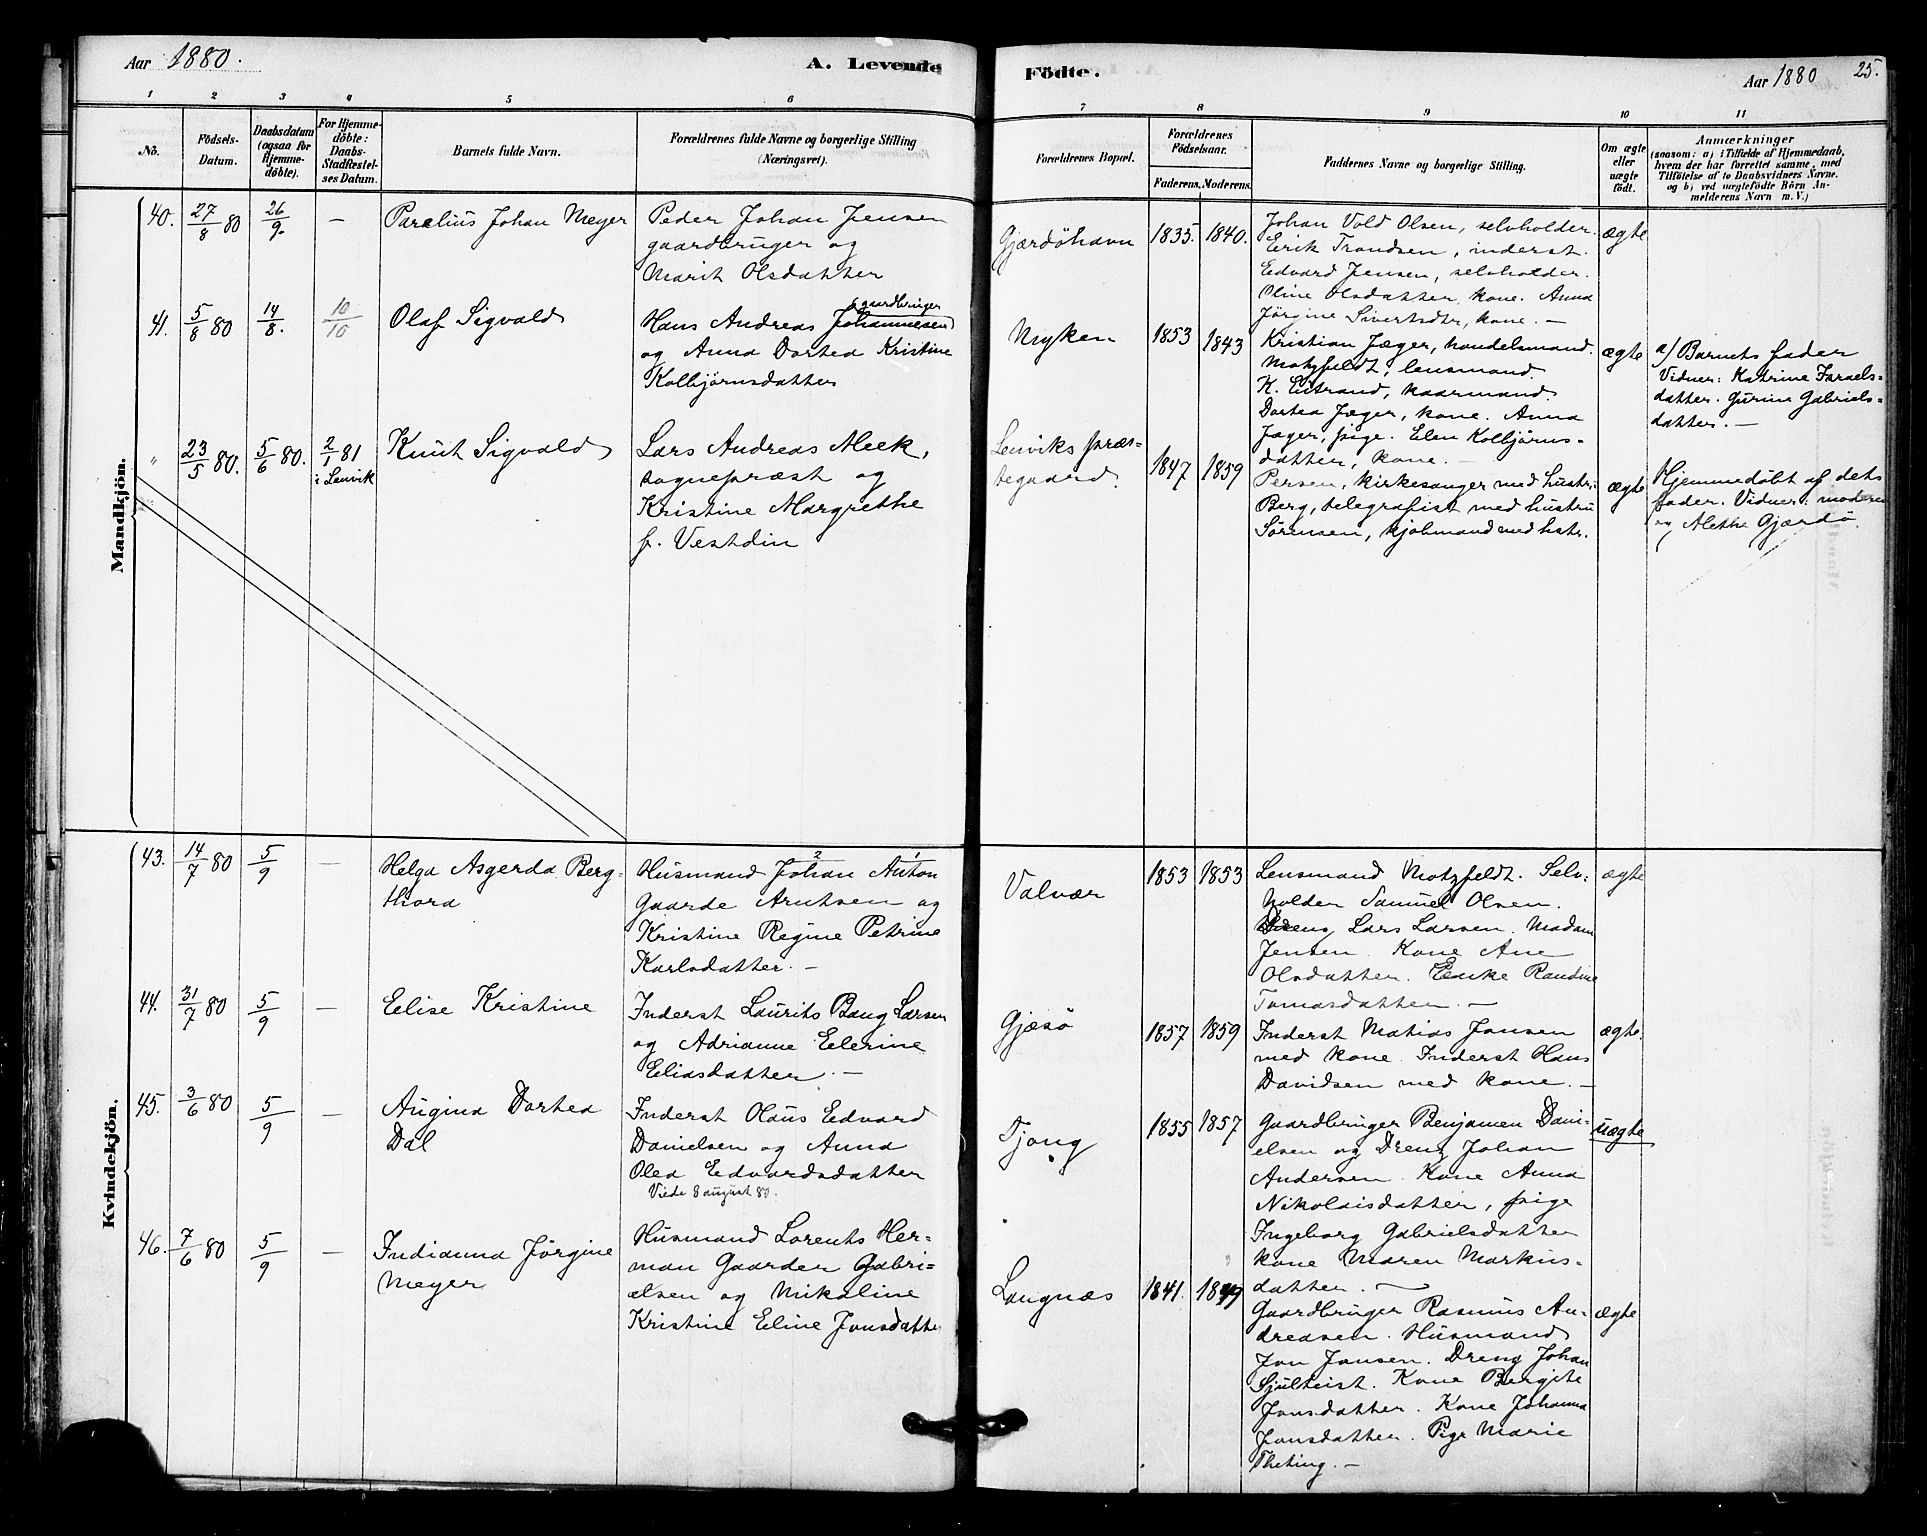 Aar 1880.
A. Levende
Födte.
Aar 1880
25.
1 2 3 4 5 6 7 8 9 10 11
No.
Födsels-Datum.
Daabsdatum (ogsaa for Hjemme-döbte).
For Hjemme-döbte: Daabs-Stadfæstel-ses Datum.
Barnets fulde Navn.
Forældrenes fulde Navne og borgerlige Stilling (Næringsvei).
Forældrenes Bopæl.
Forældrenes Födselsaar.
Faderens. Moderens.
Faddernes Navne og borgerlige Stilling.
Om ægte eller uægte födt.
Anmærkninger
(saasom: a) i Tilfælde af Hjemmedaab,
hvem der har forrettet samme, med
Tilföielse af to Daabsvidners Navne.
og b) ved uægtefödte Börn An-
melderens Navn m.V.)
Mandkjön.
40. 27/8 80 26/9. — Parelius Johan Meyer
Peder Johan Jensen
gaardbruger og
Marit Olsdatter
Gjærdöhavn 1835. 1840.
Johan Vold Olsen, selvholder.
Erik Trondsen, inderst.
Edvard Jensen, selvholder.
Oline Olsdatter, kone. Anna
Jörgine Sivertsdtr, kone. —
ægte
41. 5/8 80 14/8. 10/10 Olaf Sigvald
gaardbruger
Hans Andreas Johannesen
og Anna Dortea Kristine
Kolbjörnsdatter
Myken 1853 1843
Kristian Jæger, handelsmand.
Motzfeldt, lensmand.
K. Eistrand, kaarmand.
Dortea Jæger, kone. Anna
Jæger, pige. Elen Kolbjörns-
datter, kone. —
ægte
a/ Barnets fader
Vidner: Katrine Israels-
datter. Gurine Gabriels-
datter. —
" 23/5 80. 5/6 80. 2/1 81 i Lenvik Knut Sigvald
Lars Andreas Meek,
sognepræst og
Kristine Margrethe
f. Vestdin
Lenviks præs-
tegaard. 1847 1859
Persen, kirkesanger med hustr:
Berg, telegrafist med hustru
Sörensen, kjöbmand med hstr.
ægte
Hjemmedöbt af dets
fader. Vidner: moderen
og Alethe Gjærdö.
Kvindekjön.
43. 14/7 80 5/9 — Helga Asgerda Berg-
thora
2 1
Husmand Johan Anton
Gaarde Arntsen og
Kristine Regine Petrine
Karlsdatter. —
Valvær 1853 1853
Lensmand Motzfeldt. Selv-
holder Samuel Olsen.
Dreng Lars Larsen. Madam
Jensen. Kone Ane
Olsdatter. Enke Randine
Tomasdatter. —
ægte
44. 31/7 80 5/9 — Eelise Kristine
Inderst Laurits Bang Larsen
og Adrianne Eelerine
Eeliasdatter. —
Gjæsö 1857 1859
Inderst Matias Jonsen
med kone. Inderst Hans
Davidsen med kone. —
ægte.
45. 3/6 80 5/9 — Augina Dortea
Dal
Inderst Olaus Eedvard
Danielsen og Anna
Olea Eedvardsdatter
Viede 8 august 80.
Tjong 1855 1857
Gaardbruger Benjamen Dani-
elsen og Dreng Johan
Andersen. Kone Anna
Nikolaisdatter, pige
Ingeborg Gabrielsdatter
kone Maren Markus-
datter. —
uægte
46. 7/6 80 5/9 — Indianna Jörgine
Meyer
Husmand Lorents Her-
man Gaarder Gabri-
elsen og Mikaline
Kristine Eeline Jonsdatter
Langnæs 1841. 1849
Gaardbruger Rasmus An-
dreasen. Husmand
Jon Jonsen. Dreng Johan
Sjulteist. Kone Bergite
Jonsdatter. Kone Johanna
Jonsdatter. Pige Marie
Theting. —
ægte